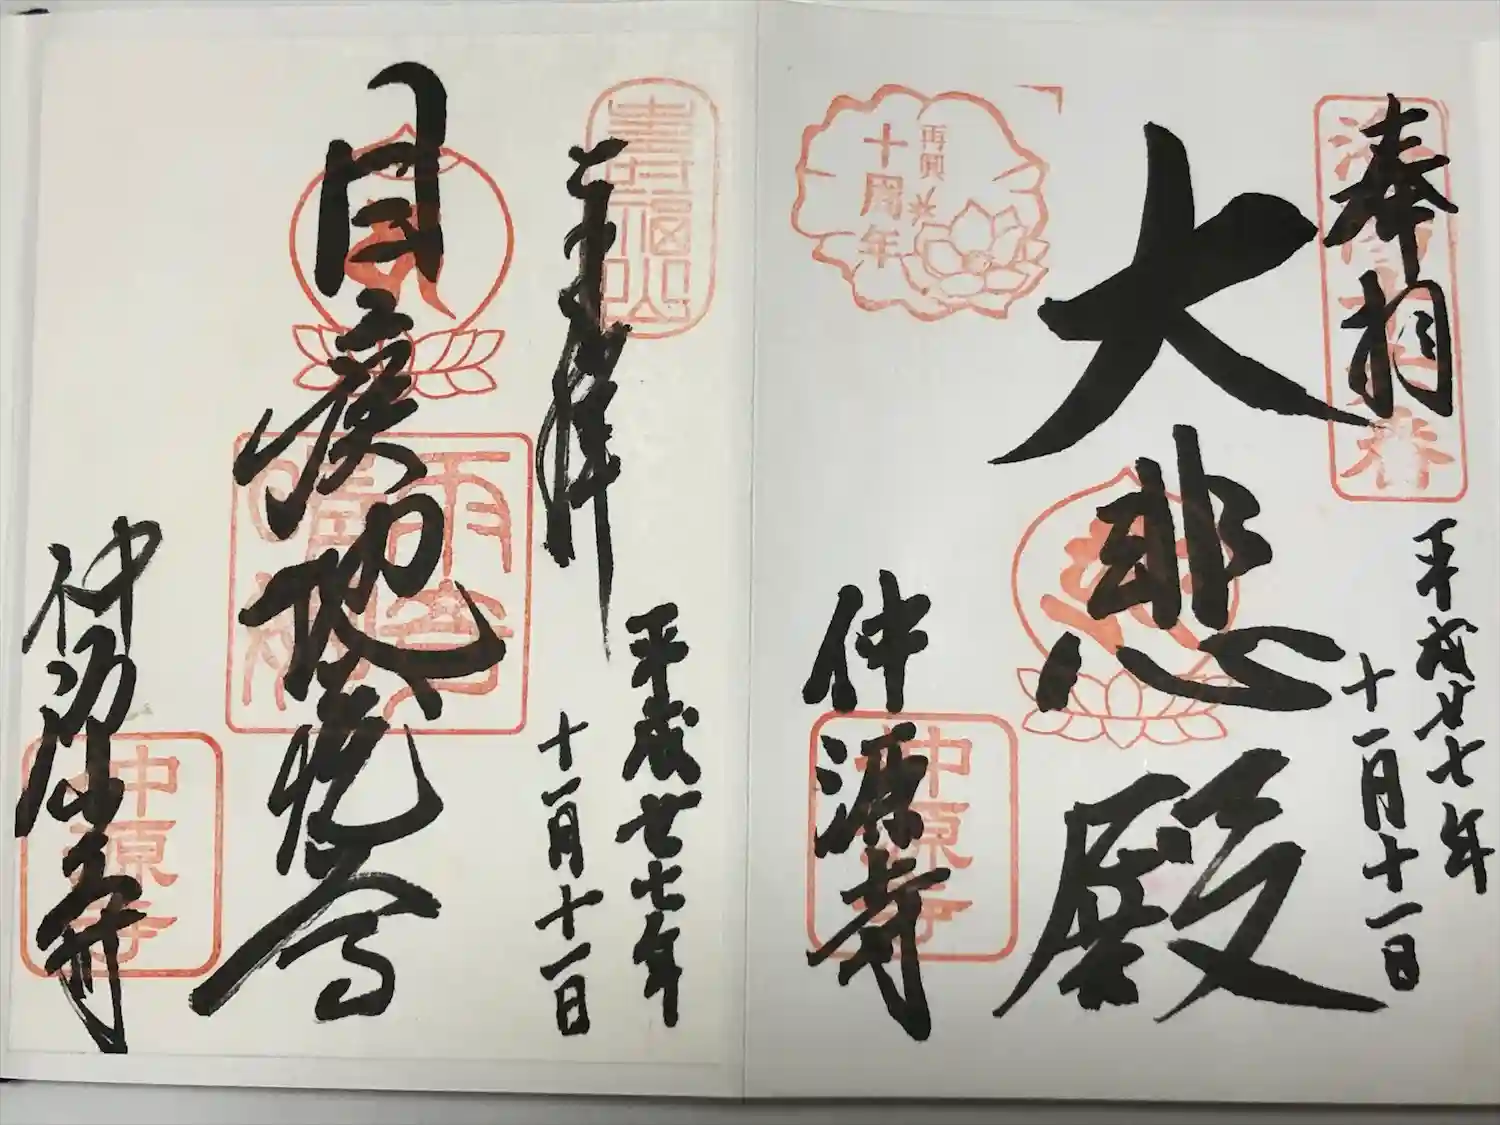 奉拝
平成廿七年
十一月十一日
大悲殿
再興
十周年
仲源寺
仲源寺
壽福山
奉拝
平成廿七年
十一月十一日
目疾地蔵尊
雨奇晴好
仲源寺
仲源寺